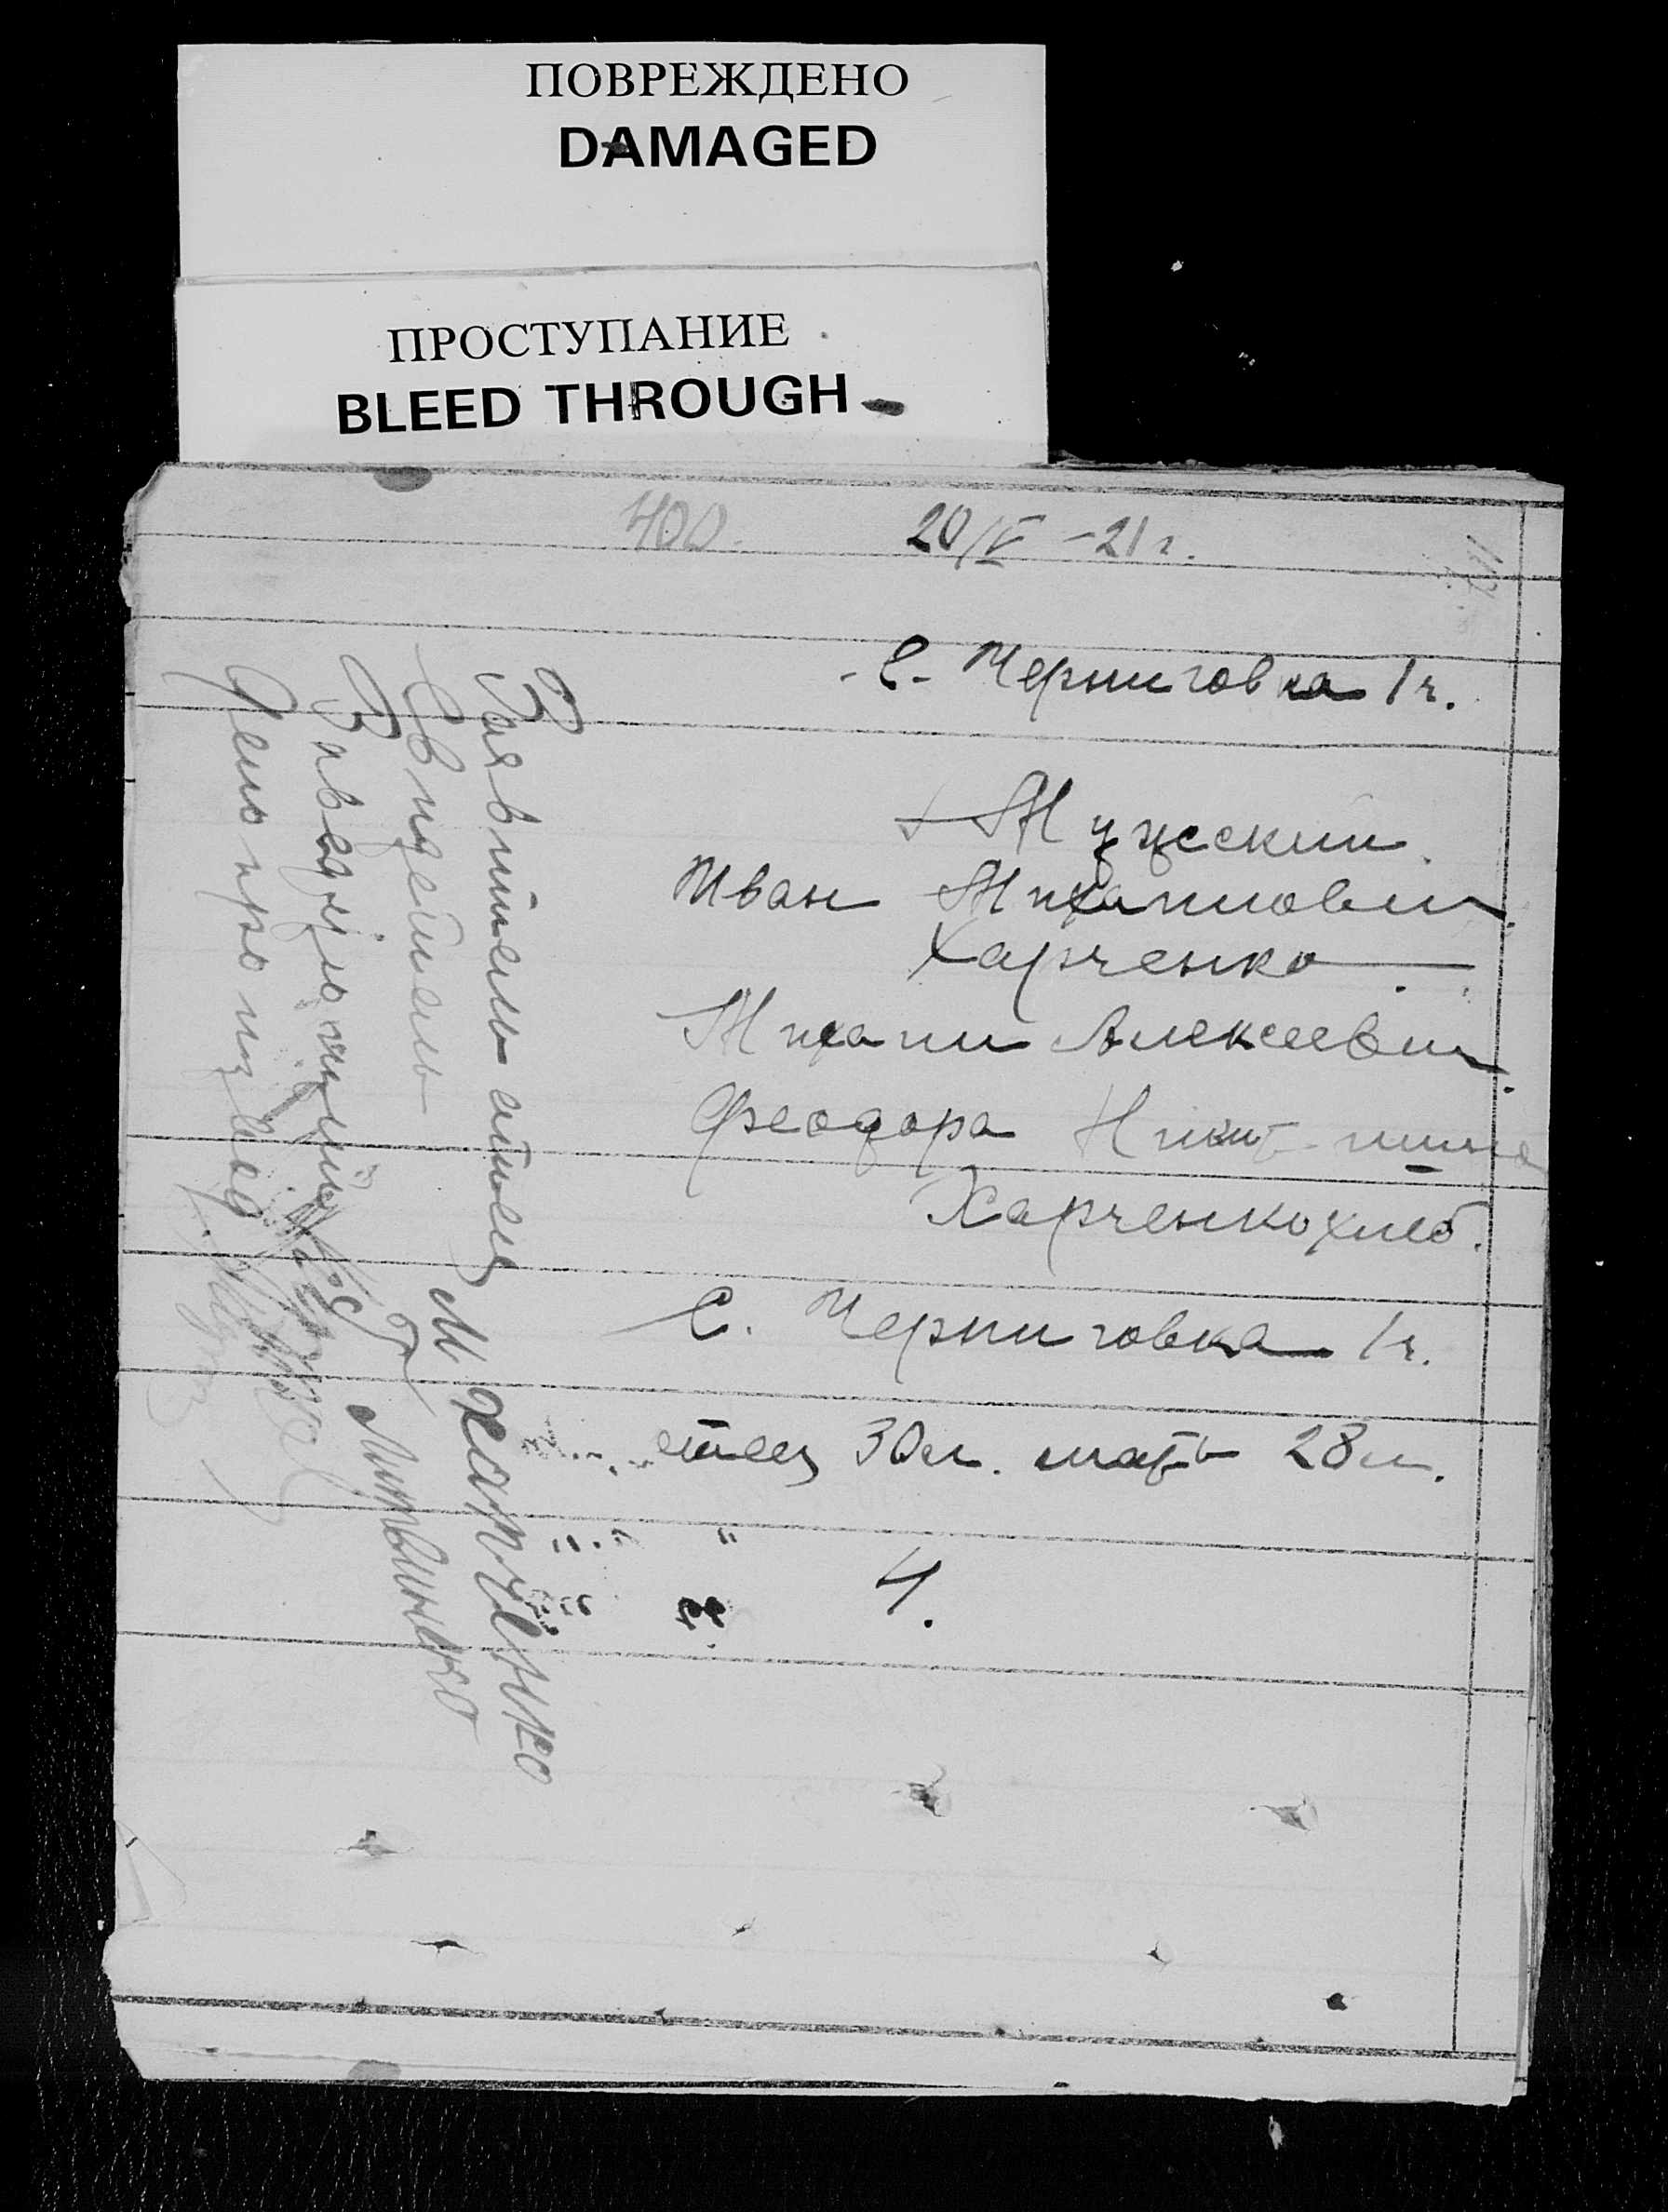 ПОВРЕЖДЕНО
DAMAGED
ПРОСТУПАНИЕ
BLEED THROUGH
400. 20/V -21 г.
С. Черниговка 1 ч.
Мужеский
Иван Михаилович
Харченко
Михаил Алексеевич
Феодора
Харченко хлеб.
С. Черниговка 1 ч.
отец 30 л. мать 28 л.
4.
Заявитель отец М Харченко
Свидетель Литвиненко
Заведующий
Делопроизвод.